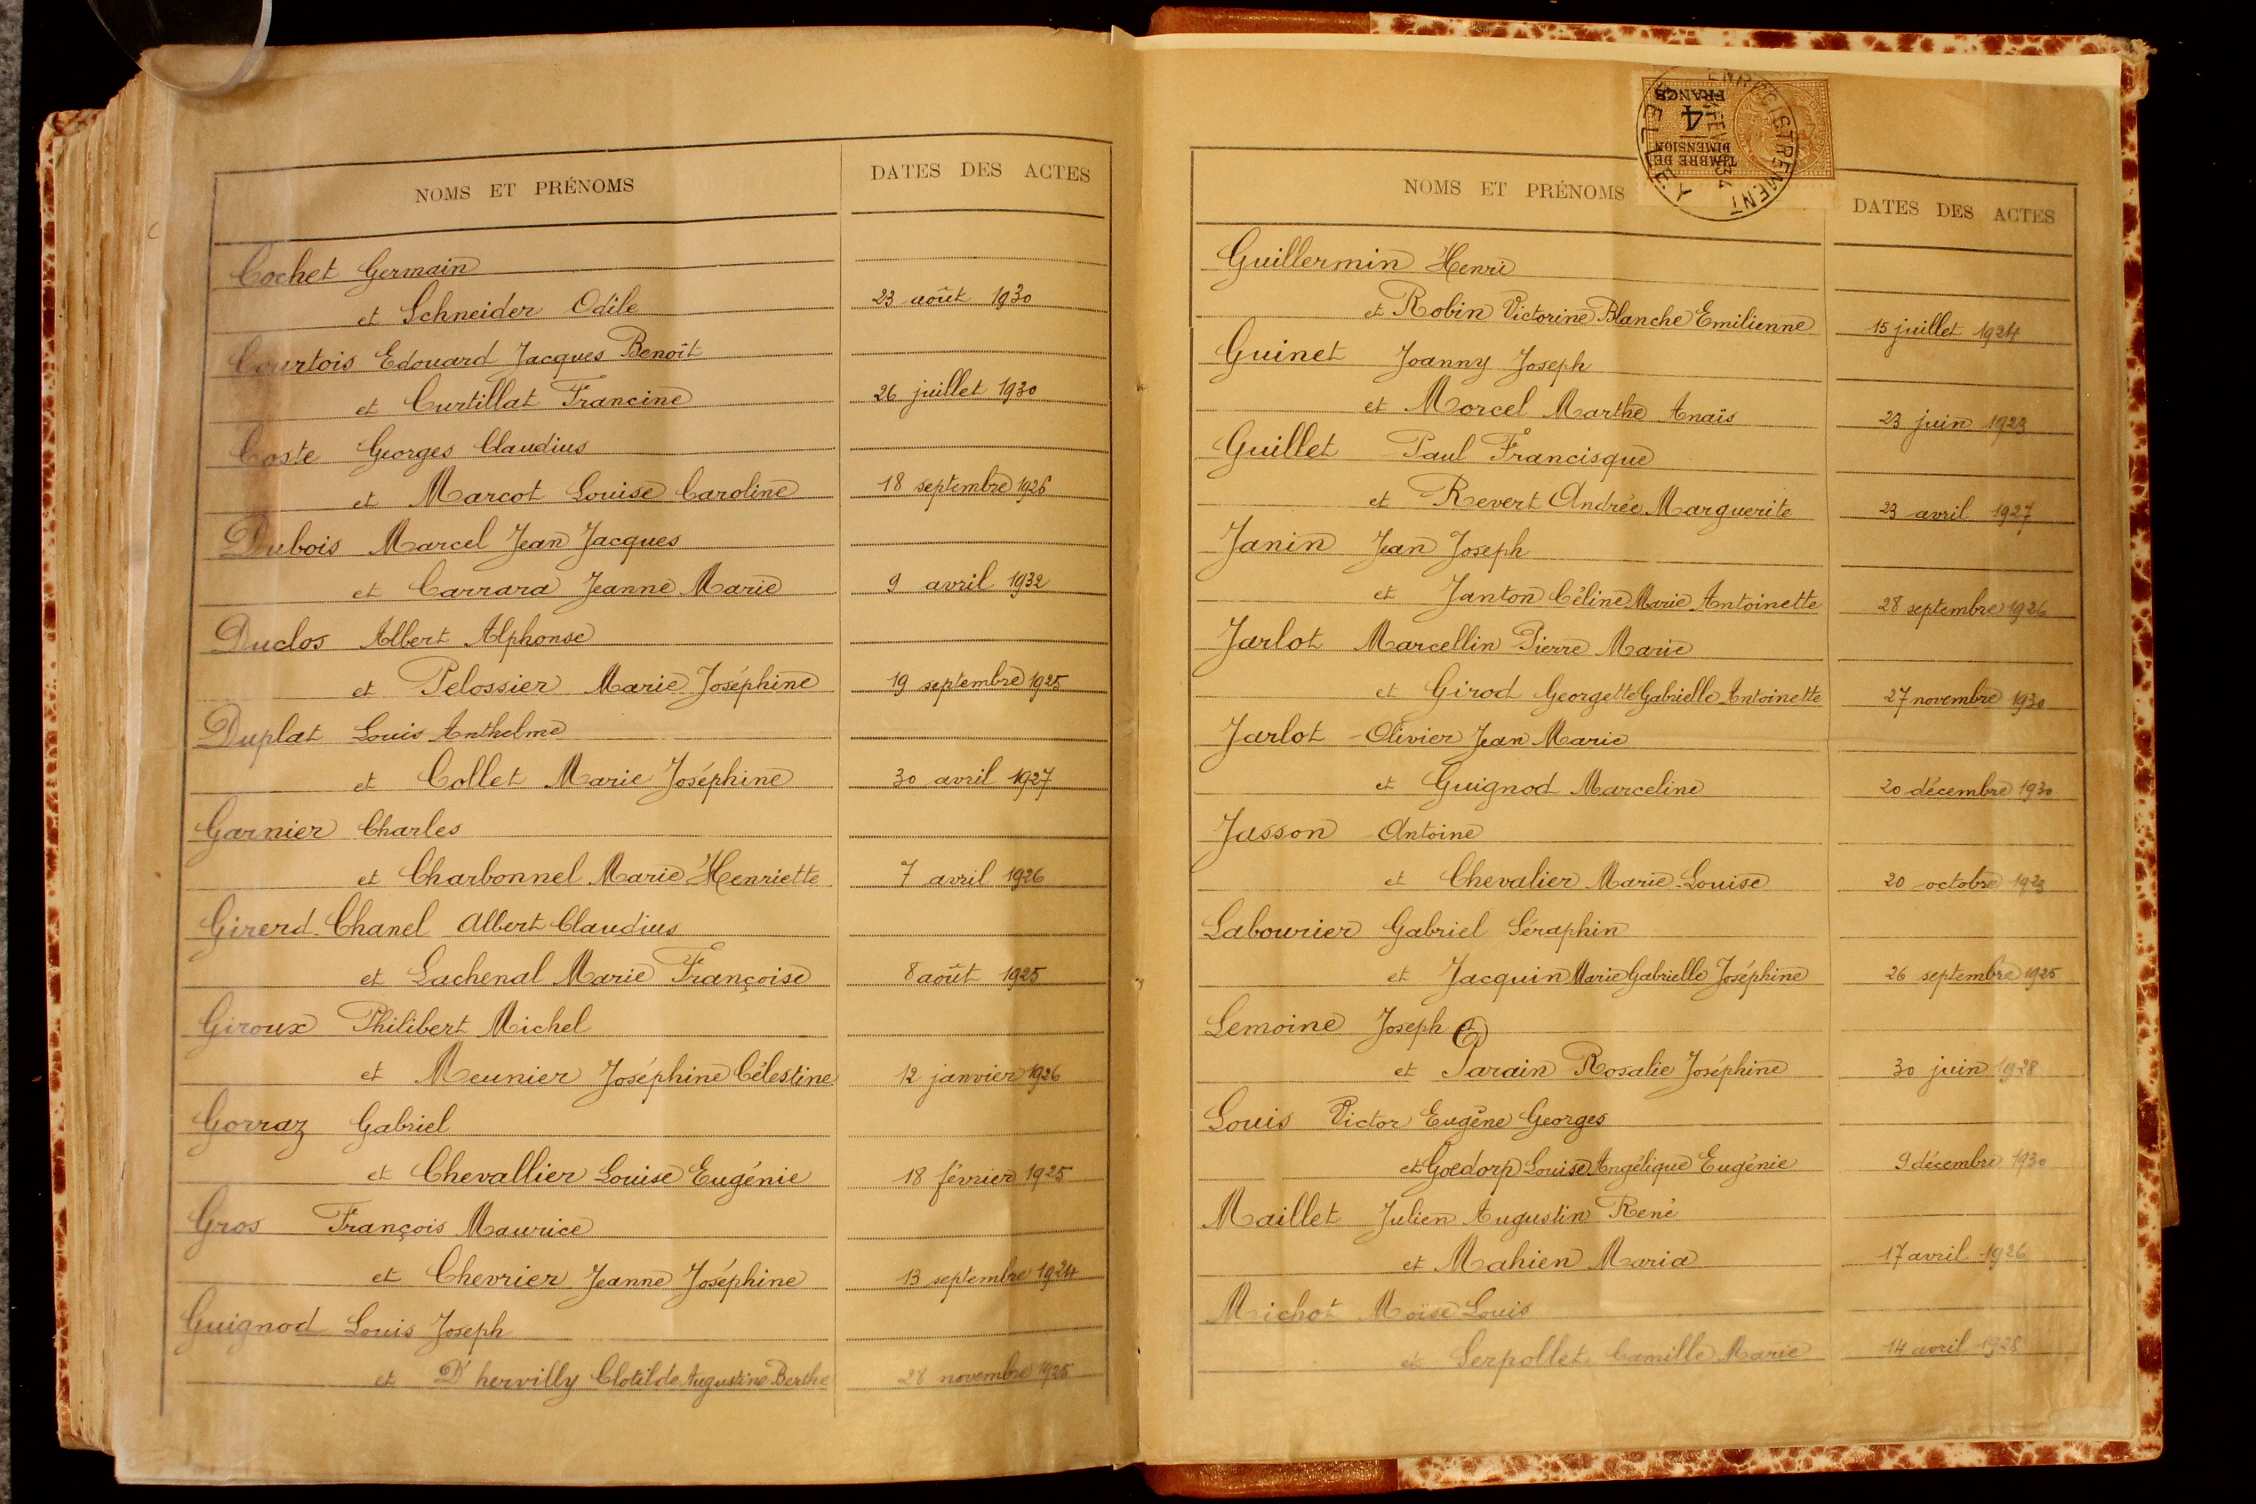 NOMS ET PRÉNOMS
DATES DES ACTES
Cochet Germain
et Schneider Odile 23 août 1930
Courtois Edouard Jacques Benoît
et Curtillat Francine 26 juillet 1930
Coste Georges Claudius
et Marcot Louise Caroline 18 septembre 1926
Dubois Marcel Jean Jacques
et Carrara Jeanne Marie 9 avril 1932
Duclos Albert Alphonse
et Pelossier Marie Joséphine 19 septembre 1925
Duplat Louis Anthelme
et Collet Marie Joséphine 30 avril 1927
Garnier Charles
et Charbonnel Marie Henriette 7 avril 1926
Girerd-Chanel Albert Claudius
et Lachenal Marie Françoise 8 août 1925
Giroux Philibert Michel
et Meunier Joséphine Célestine 12 janvier 1926
Gorraz Gabriel
et Chevallier Louise Eugénie 18 février 1925
Gros François Maurice
et Chevrier Jeanne Joséphine 13 septembre 1924
Guignod Louis Joseph
et D'hervilly Clotilde Augustine Berthe 28 novembre 1925
ENREGISTREMENT
BELLEY
TIMBRE DE
DIMENSION
4
FRANCS
NOMS ET PRÉNOMS
DATES DES ACTES
Guillermin Henri
et Robin Victorine Blanche Emilienne 15 juillet 1924
Guinet Joanny Joseph
et Morcel Marthe Anaïs 23 juin 1923
Guillet Paul Francisque
et Revert Andrée Marguerite 23 avril 1927
Janin Jean Joseph
et Janton Céline Marie Antoinette 28 septembre 1926
Jarlot Marcellin Pierre Marie
et Girod Georgette Gabrielle Antoinette 27 novembre 1930
Jarlot Olivier Jean Marie
et Guignod Marceline 20 décembre 1930
Jasson Antoine
et Chevalier Marie-Louise 20 octobre 1923
Labourier Gabriel Séraphin
et Jacquin Marie Gabrielle Joséphine 26 septembre 1925
Lemoine Joseph et
et Parain Rosalie Joséphine 30 juin 1928
Louis Victor Eugène Georges
et Goedorp Louise Angélique Eugénie 9 décembre 1930
Maillet Julien Augustin René
et Mahien Maria 17 avril 1926
Michot Moïse Louis
et Serpollet Camille Marie 14 avril 1928